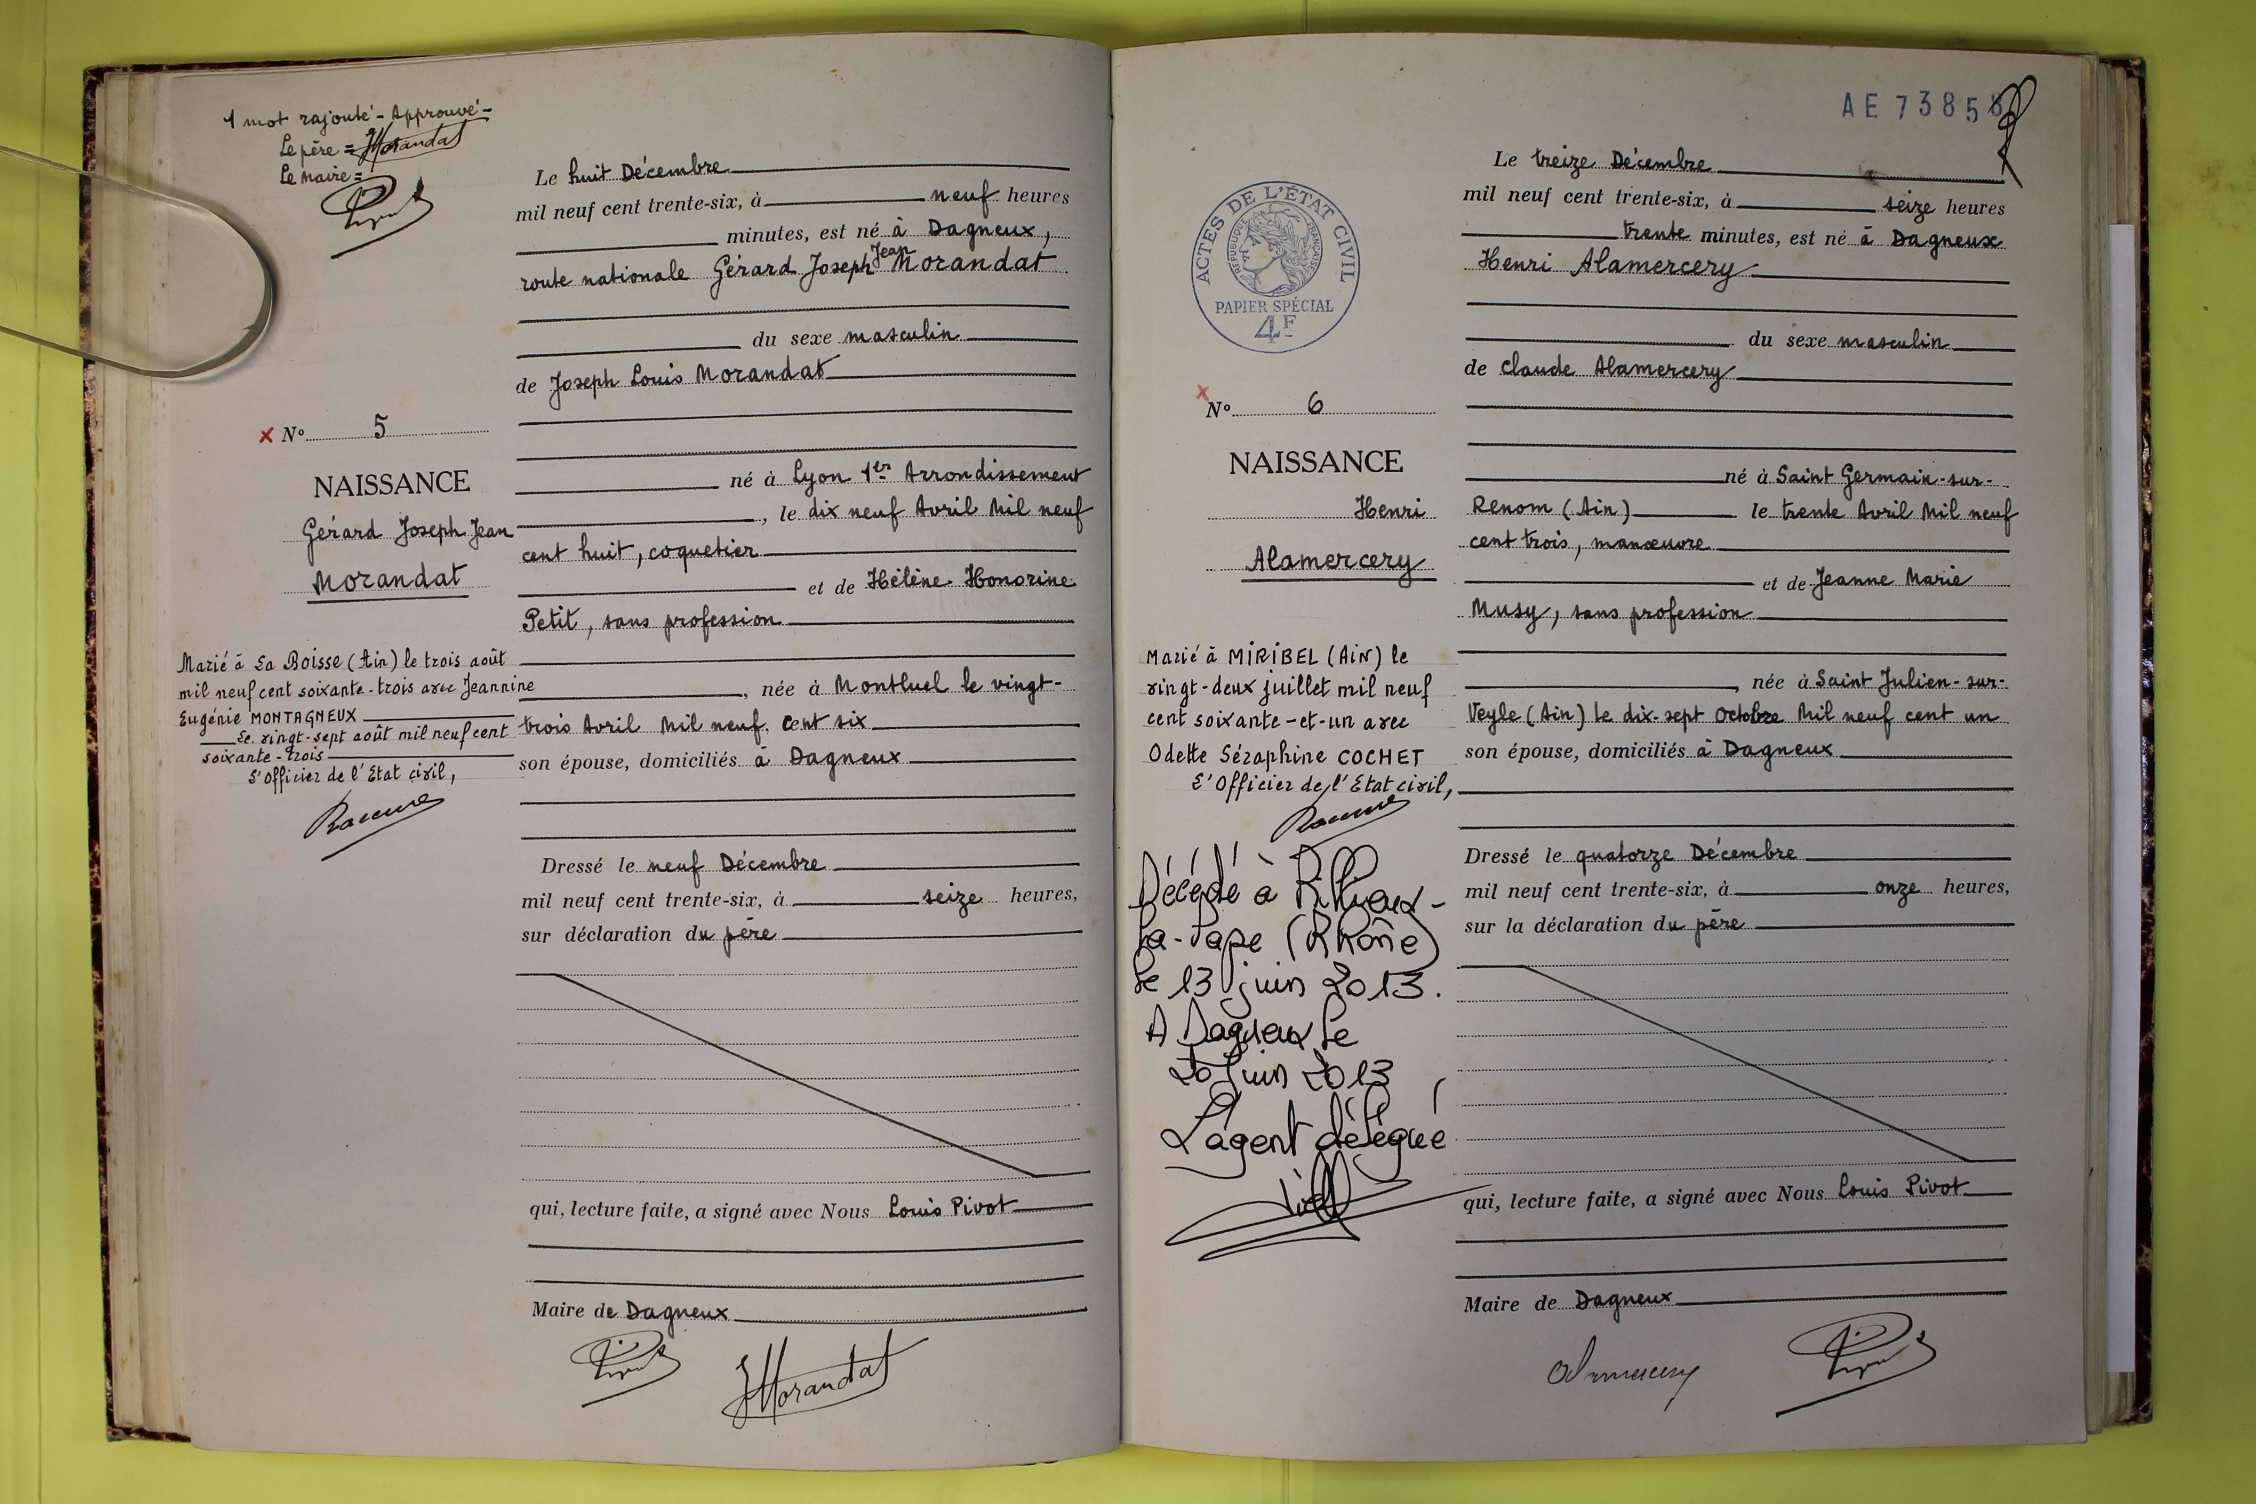 1 mot rajouté - Approuvé -
Le père = JMorandat
Le Maire =
Pivot
Le huit Décembre
mil neuf cent trente-six, à neuf heures
minutes, est né à Dagneux,
route nationale Gérard Joseph Jean Morandat
du sexe masculin
de Joseph Louis Morandat
né à Lyon 1er Arrondissement
, le dix neuf Avril Mil neuf
cent huit, coquetier
et de Hélène Honorine
Petit, sans profession
, née à Montluel le vingt-
trois Avril Mil neuf cent six
son épouse, domiciliés à Dagneux
Dressé le neuf Décembre
mil neuf cent trente-six, à seize heures,
sur déclaration du père
qui, lecture faite, a signé avec Nous Louis Pivot
Maire de Dagneux
Pivot
JMorandat
× No 5
NAISSANCE
Gérard Joseph Jean
Morandat
Marié à La Boisse (Ain) le trois août
mil neuf cent soixante-trois avec Jeannine
Eugénie MONTAGNEUX
Le vingt-sept août mil neuf cent
soixante-trois
L'Officier de l'Etat civil,
AE 7385
ACTES DE L'ÉTAT CIVIL
RÉPUBLIQUE FRANÇAISE
PAPIER SPÉCIAL
4F
× No 6
NAISSANCE
Henri
Alamercery
Marié à MIRIBEL (AIN) le
vingt-deux juillet mil neuf
cent soixante-et-un avec
Odette Séraphine COCHET
L'Officier de l'Etat civil,
Décédé à Rillieux-
La-Pape (Rhône)
le 13 juin 2013.
A Dagneux le
20 Juin 2013
L'agent délégué
Le treize Décembre
mil neuf cent trente-six, à seize heures
trente minutes, est né à Dagneux
Henri Alamercery
du sexe masculin
de Claude Alamercery
né à Saint Germain-sur-
Renom (Ain) le trente Avril Mil neuf
cent trois, manœuvre
et de Jeanne Marie
Musy, sans profession
, née à Saint Julien-sur-
Veyle (Ain) le dix-sept Octobre Mil neuf cent un
son épouse, domiciliés à Dagneux
Dressé le quatorze Décembre
mil neuf cent trente-six, à onze heures,
sur la déclaration du père
qui, lecture faite, a signé avec Nous Louis Pivot
Maire de Dagneux
Alamercery
Pivot